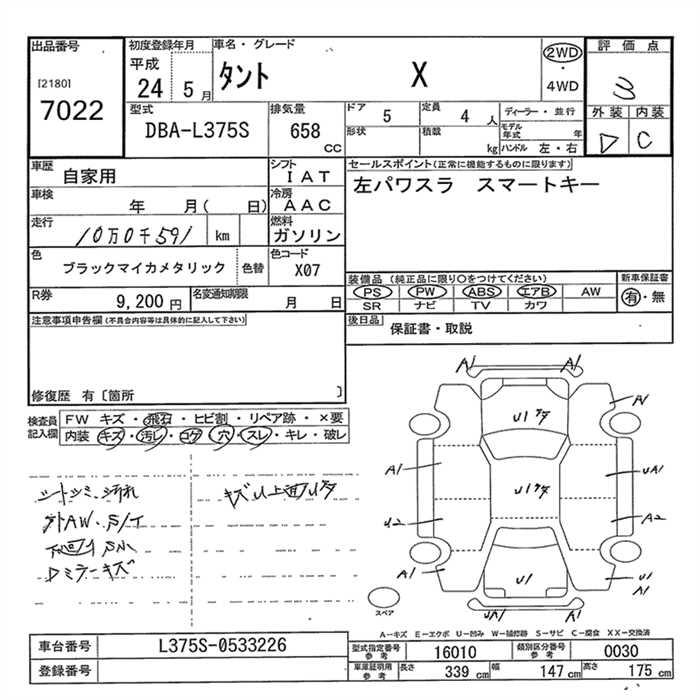 出品番号
[2180]
7022
初度登録年月
平成
24 5月
車名・グレード
タント X
2WD
・
4WD
評価点
3
外装 内装
D C
型式
DBA-L375S
排気量
658 CC
ドア 5
形状
定員 4人
積載 kg
ディーラー・並行
モデル年式 年
ハンドル 左・右
車歴 自家用
シフト IAT
車検 年 月( 日)
冷房 AAC
走行 10万0千591 km
燃料 ガソリン
色 ブラックマイカメタリック 色替
色コード X07
R券 9,200円
名変通知期限 月 日
セールスポイント(正常に機能するものに限ります)
左パワスラ スマートキー
装備品 (純正品に限り○をつけてください)
PS PW ABS エアB AW
SR ナビ TV カワ
新車保証書
有・無
後日品 保証書・取説
注意事項申告欄(不具合内容等は具体的に記入して下さい)
修復歴 有〔箇所 〕
検査員記入欄
FW キズ・飛石・ヒビ割・リペア跡・×要
内装 キズ・汚レ・コゲ・穴・スレ・キレ・破レ
シートシミ、汚れ
外AW、S/T
Dミラーキズ
A1 A1
U1 A1
A1 U1 UA1
U2 A2
A1 U1 U1
A1
スペア
A-キズ E-エクボ U-凹み W-補修跡 S-サビ C-腐食 XX-交換済
車台番号 L375S-0533226
登録番号
型式指定番号参考 16010
類別区分番号参考 0030
車庫証明用参考 長さ 339cm 幅 147cm 高さ 175cm